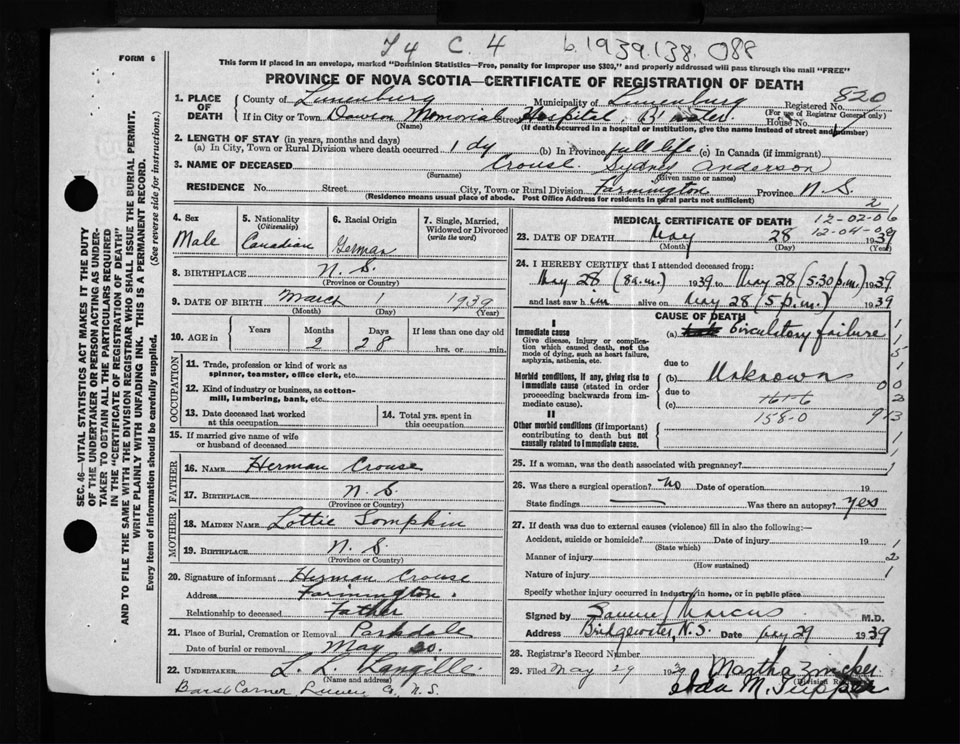 T4 C. 4 b.1939.138.088
FORM 6
This form if placed in an envelope, marked "Dominion Statistics—Free, penalty for improper use $300," and properly addressed will pass through the mail "FREE"
PROVINCE OF NOVA SCOTIA—CERTIFICATE OF REGISTRATION OF DEATH
1. PLACE OF DEATH County of Lunenburg Municipality of Lunenburg Registered No. 820
(For use of Registrar General only)
If in City or Town Dawson Memorial Street Hospital B'water. House No.
(Name) (If death occurred in a hospital or institution, give the name instead of street and number)
2. LENGTH OF STAY (in years, months and days)
(a) In City, Town or Rural Division where death occurred 1 dy (b) In Province full life (c) In Canada (if immigrant)
3. NAME OF DECEASED Crouse Sydney Anderson
(Surname) (Given name or names)
RESIDENCE No. Street City, Town or Rural Division Farmington Province N. S.
(Residence means usual place of abode. Post Office Address for residents in rural parts not sufficient) 2
4. Sex Male
5. Nationality (Citizenship) Canadian
6. Racial Origin German
7. Single, Married, Widowed or Divorced (write the word)
8. BIRTHPLACE N. S.
(Province or Country)
9. DATE OF BIRTH March 1 1939
(Month) (Day) (Year)
10. AGE in Years Months Days If less than one day old
2 28 hrs. or min.
OCCUPATION
11. Trade, profession or kind of work as spinner, teamster, office clerk, etc.
12. Kind of industry or business, as cotton-mill, lumbering, bank, etc.
13. Date deceased last worked at this occupation
14. Total yrs. spent in this occupation
15. If married give name of wife or husband of deceased
FATHER
16. NAME Herman Crouse
17. BIRTHPLACE N. S.
(Province or Country)
MOTHER
18. MAIDEN NAME Lottie Sompkin
19. BIRTHPLACE N. S
(Province or Country)
20. Signature of informant Herman Crouse
Address Farmington.
Relationship to deceased Father
21. Place of Burial, Cremation or Removal Parkdale
Date of burial or removal May 30.
22. UNDERTAKER L. L. Langille.
(Name and address)
Corner Lunen Co. N. S.
MEDICAL CERTIFICATE OF DEATH 12-02-06
12-04-09
23. DATE OF DEATH May 28 1939
(Month) (Day) (Year)
24. I HEREBY CERTIFY that I attended deceased from:
May 28 (8a.m.) 1939 to May 28 (5.30 p.m.) 1939
and last saw him alive on May 28 (5 p.m.) 1939
CAUSE OF DEATH
I
Immediate cause
Give disease, injury or complication which caused death, not the mode of dying, such as heart failure, asphyxia, asthenia, etc.
(a) Circulatory failure
due to
Morbid conditions, if any, giving rise to immediate cause (stated in order proceeding backwards from immediate cause).
(b) Unknown
due to
(c) 1616
158-0
II
Other morbid conditions (if important) contributing to death but not causally related to immediate cause.
25. If a woman, was the death associated with pregnancy?
26. Was there a surgical operation? No Date of operation 19
State findings Was there an autopsy? yes
27. If death was due to external causes (violence) fill in also the following:—
Accident, suicide or homicide? Date of injury 19
(State which)
Manner of injury
(How sustained)
Nature of injury
Specify whether injury occurred in industry, in home, or in public place
Signed by Marcus M.D.
Address Bridgewater, N.S. Date May 29 1939
28. Registrar's Record Number
29. Filed May 29 1939 Martha Zwicker
(Division Registrar)
Ida M. Tupper
SEC. 46—VITAL STATISTICS ACT MAKES IT THE DUTY OF THE UNDERTAKER OR PERSON ACTING AS UNDERTAKER TO OBTAIN ALL THE PARTICULARS REQUIRED IN THE "CERTIFICATE OF REGISTRATION OF DEATH" AND TO FILE THE SAME WITH THE DIVISION REGISTRAR WHO SHALL ISSUE THE BURIAL PERMIT.
WRITE PLAINLY WITH UNFADING INK. THIS IS A PERMANENT RECORD.
Every item of information should be carefully supplied. (See reverse side for instructions.)